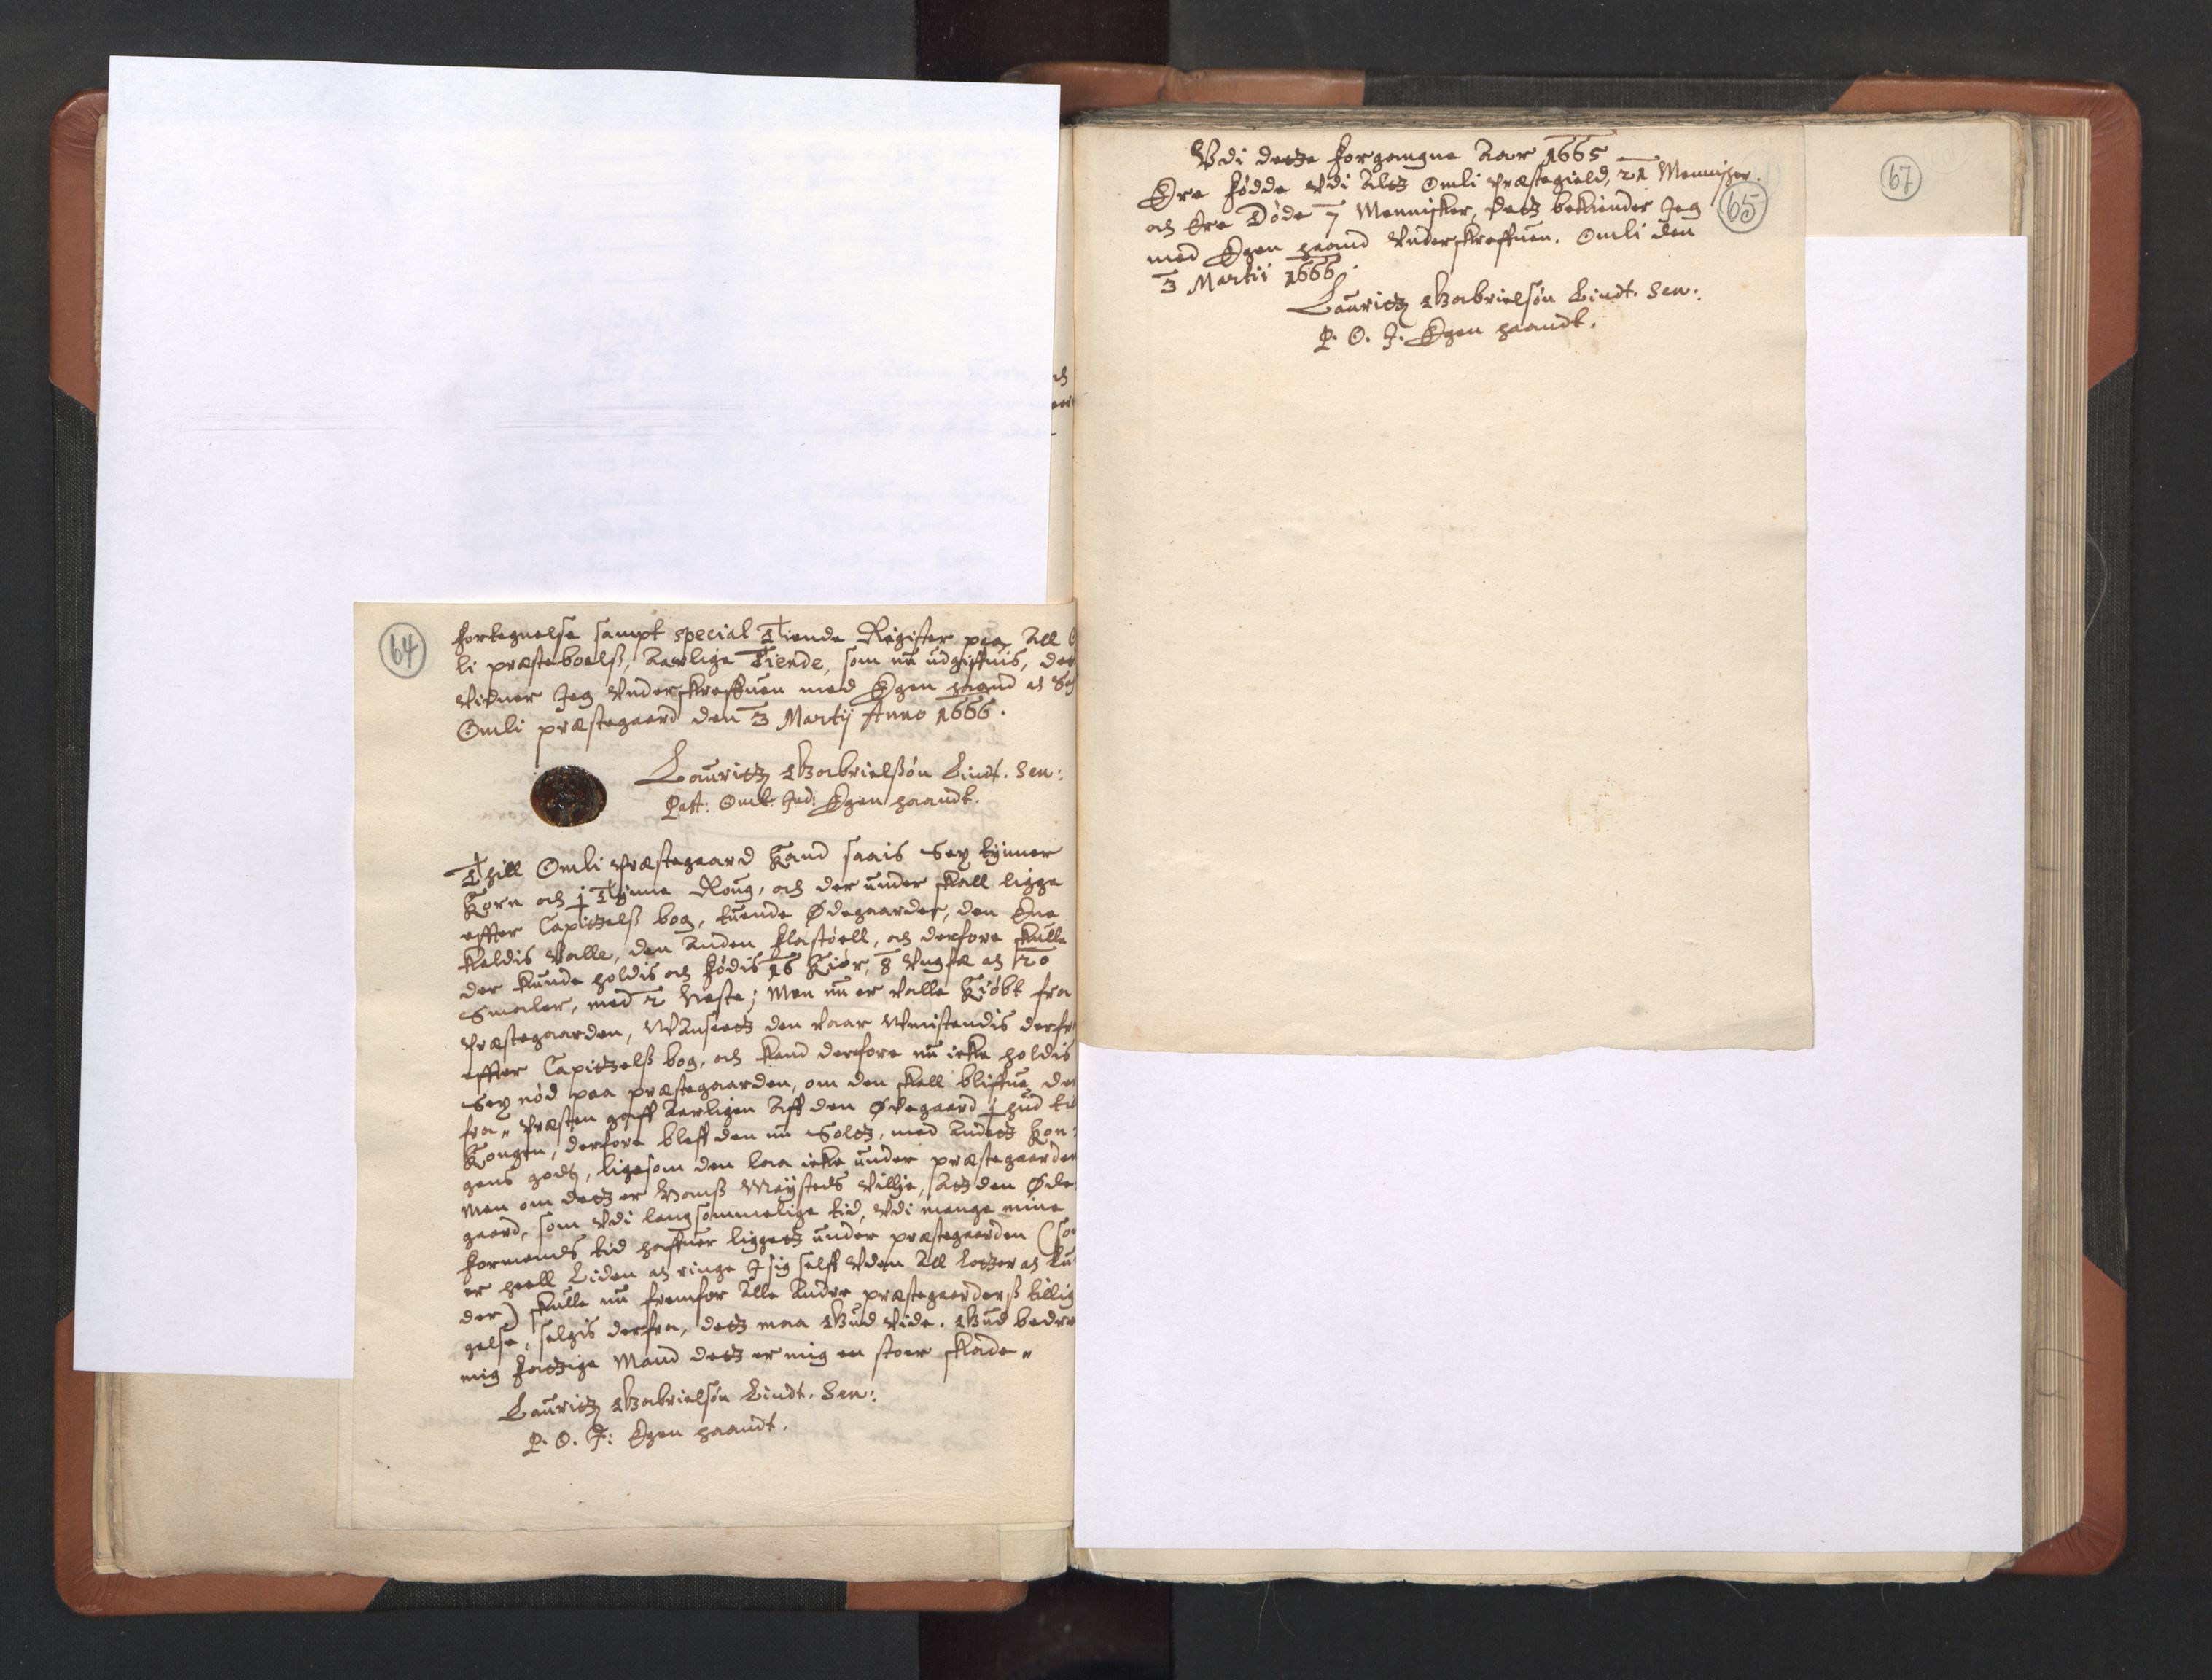 64
fortegnelse sampt special Tiende Register paa All
li præsteboelß, Aarlige Tiende, som nu udgiffuis, det
vidner Jeg Underskreffuen med Egen haand
Omli præstegaard den 3 Martij Anno 1666.
Lauritz Gabrielßøn Lindt. Sen:
Past: Oml: Ind: Egen haandt.
Thill Omli Præstegaard Kand saais Sex tynner
Korn och 1 Tynne Roug, och der under skall ligge
effter Capitzelß bog, tuende Ødegaarder, den Ene
kaldis Valle, den Anden flastøell, och derfore skulle
der kunde holdis och fødis 16 Kiør, 8 Ungfæ och 20
Smaler, med 2 Heste; Men nu er Valle Kiøbt fra
Præstegaarden, Uanseetz den vaar Umistendis derfra
effter Capitzelß bog, och kand derfore nu icke holdis
Sex nød paa præstegaarden, om den skall bliffue der
fra, Præsten gaff Aarligen Aff den Ødegaard 1 hud til
Kongen, derfore bleff den nu Soltz, med Andetz Kon:
gens godtz, ligesom den laa icke under præstegaarden
Men om detz er Hanß Maÿsteds Villie, Attz den Øde
gaard, som Udi langsommelige tid, Udi mange mine
formends tid haffuer liggetz under præstegaarden (som
er heell Liden och ringe I sig self Uden All Lotzer och Lun
der) skulle nu fremfor Alle Andre præstegaarderß tillig
gelse, selgis derfra, detz maa Gud vide. Gud bedre
mig fattige Mand detz er mig en stoer skade.
Lauritz Gabrielsøn Lindt. Sen:
P. O. I: Egen haandt.
Udi dette forgangne Aar 1665
Ere fødde Udi Altz Omli Præstegield, 21 Mennisker.
och Ere Døde 7 Mennisker, Detz bekiender Jeg
med Egen haand Underskreffuen. Omli den
3 Martii 1666.
Lauritz Gabrielsøn Lindt. Sen:
P. O. I. Egen haandt.
65
67